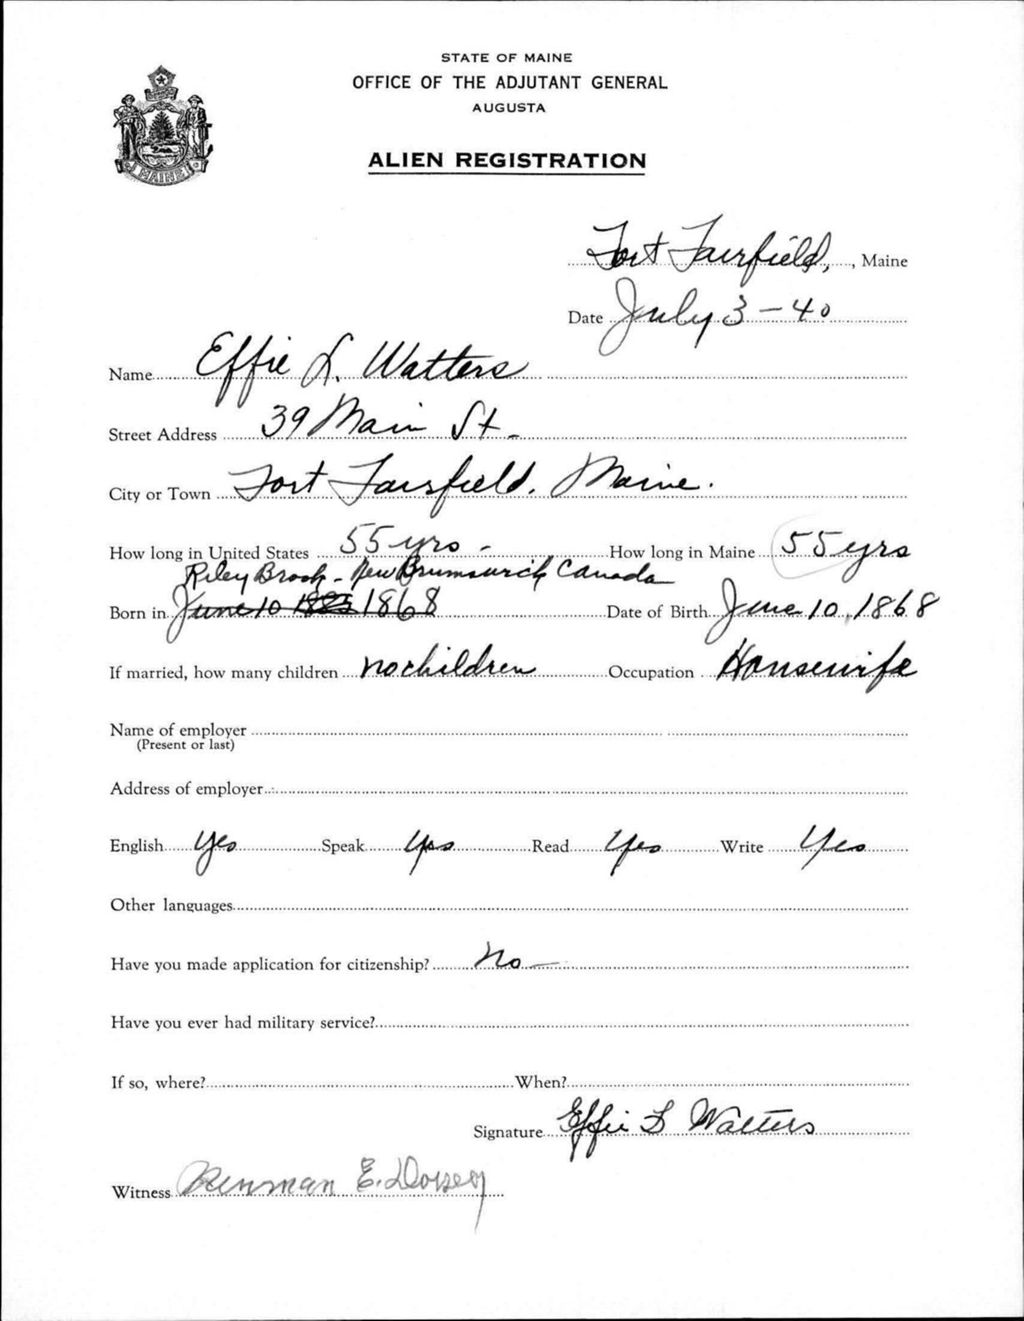 STATE OF MAINE
OFFICE OF THE ADJUTANT GENERAL
AUGUSTA
MAINE
ALIEN REGISTRATION
Fort Fairfield, , Maine
Date July 3-40
Name Effie L. Watters
Street Address 39 Main St -
City or Town Fort Fairfield, Maine.
How long in United States 55 yrs - How long in Maine 55 yrs
Riley Brook - New Brunswick Canada
Born in June 10 1868 Date of Birth June 10, 1868
If married, how many children no children Occupation Housewife
Name of employer
(Present or last)
Address of employer
English Yes Speak Yes Read Yes Write Yes
Other languages
Have you made application for citizenship? No
Have you ever had military service?
If so, where? When?
Signature Effie L Watters
Witness E. Dorsey